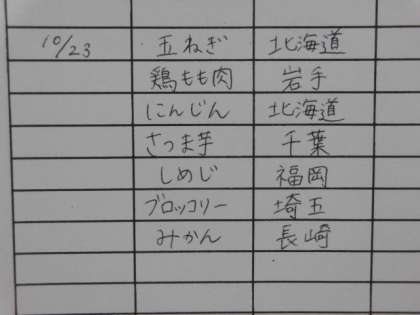 10/23 玉ねぎ 北海道
鶏もも肉 岩手
にんじん 北海道
さつま芋 千葉
しめじ 福岡
ブロッコリー 埼玉
みかん 長崎